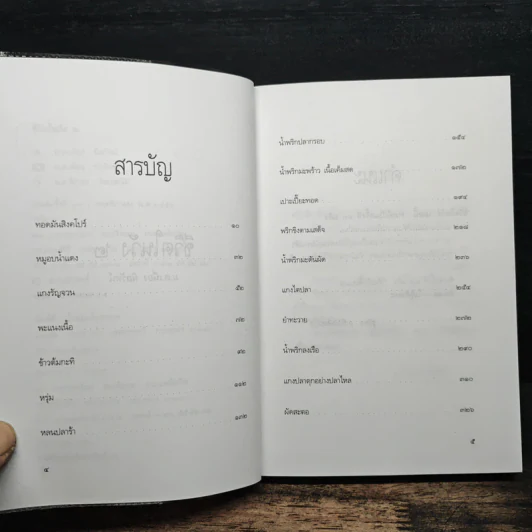 สารบัญ
ทอดมันสิงคโปร์ ๑๐
หมูอบน้ำแดง ๓๒
แกงรัญจวน ๕๒
พะแนงเนื้อ ๗๒
ข้าวต้มกะทิ ๙๒
หรุ่ม
หลนปลาร้า
๔
น้ำพริกปลากรอบ ๑๕๔
น้ำพริกมะพร้าว เนื้อเค็มสด ๑๗๒
เปาะเปี๊ยะทอด ๑๙๔
พริกขิงตามเสด็จ ๒๑๘
น้ำพริกมะตันผัด ๒๓๖
แกงไตปลา ๒๕๔
ยำทะวาย ๒๗๒
น้ำพริกลงเรือ ๒๙๐
แกงปลาดุกอย่างปลาไหล ๓๑๐
ผัดสะตอ ๓๒๖
๕